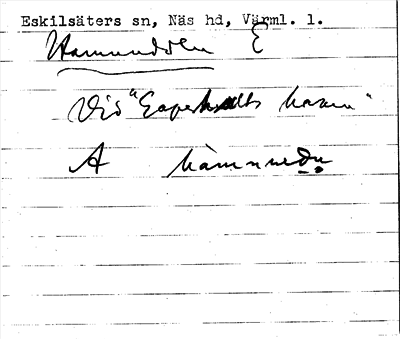 Eskilsäters sn, Näs hd, Värml. l.
Hamnudden E
Vid "Esperhults hamn"
A hàmnuedn